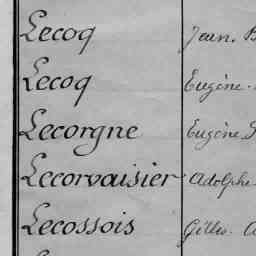 Lecoq Jean.
Lecoq Eugène
Lecorgne Eugène
Lecorvaisier Adolphe
Lecossois Gilles